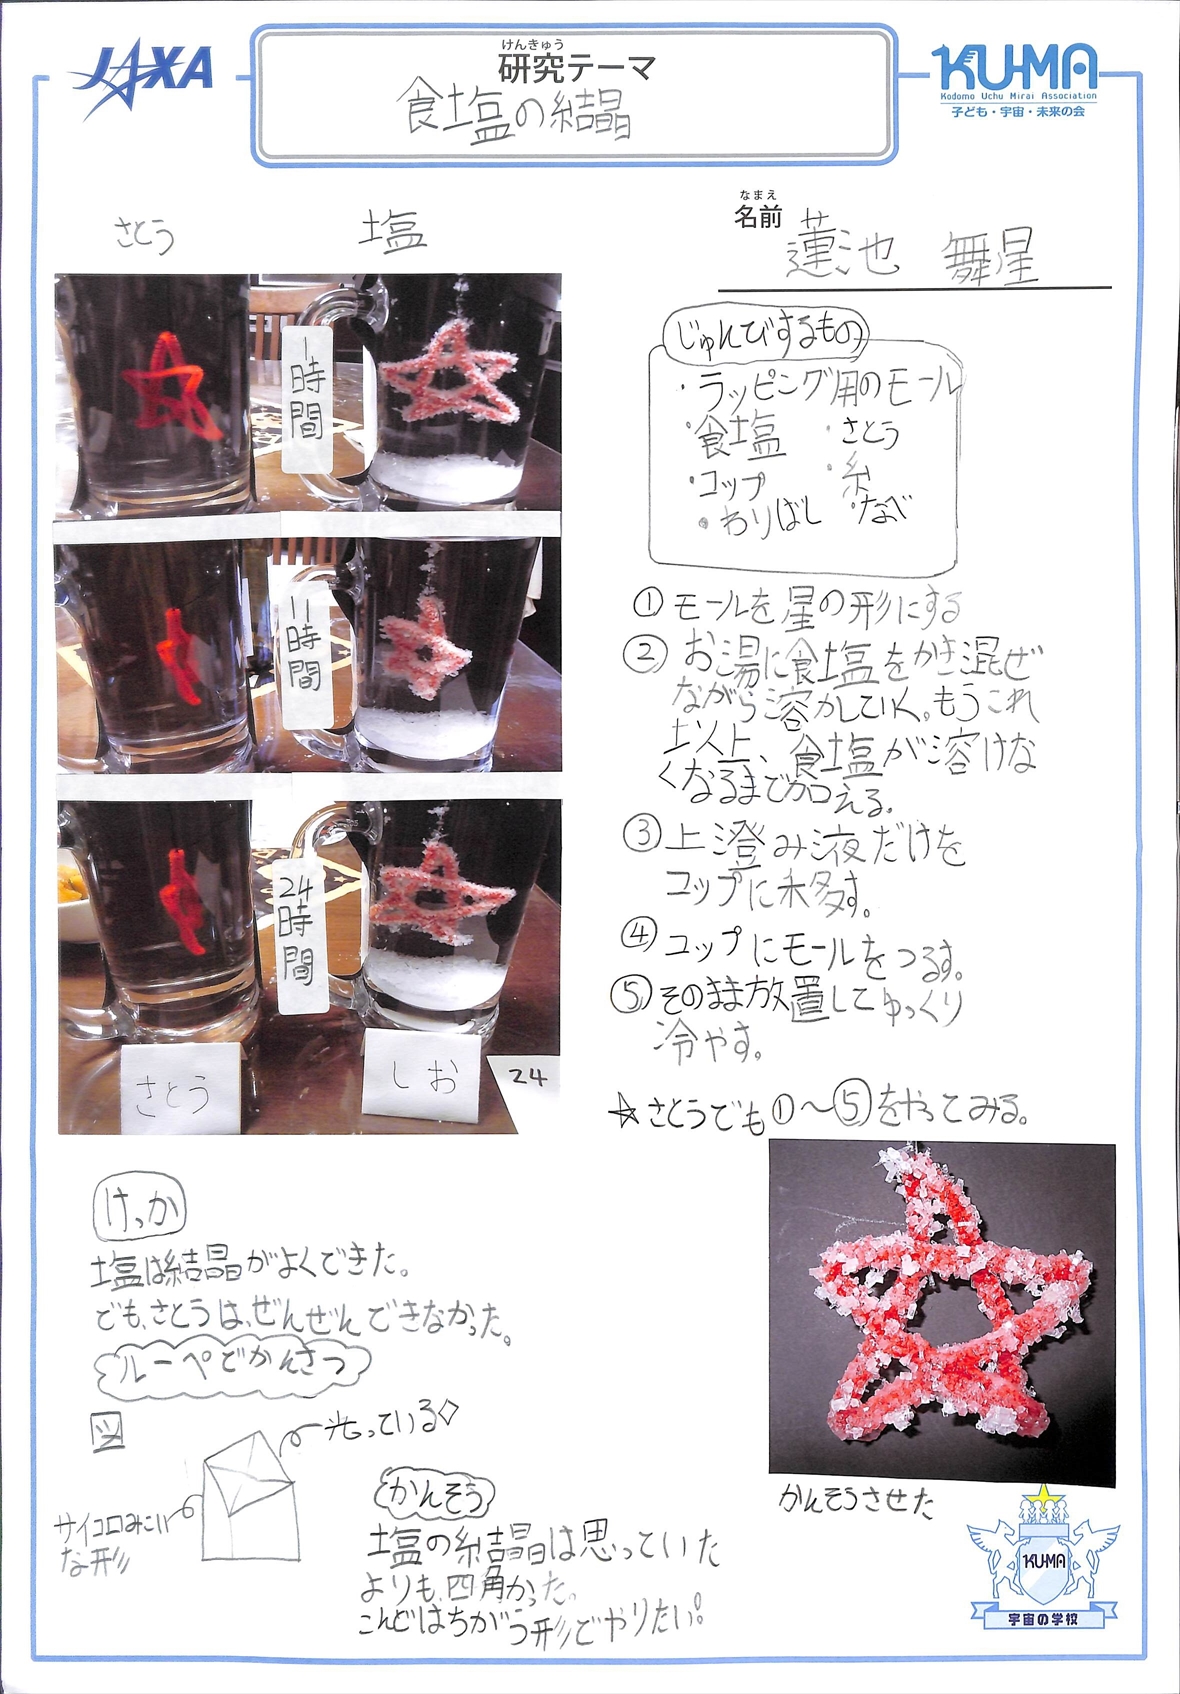 JAXA
けんきゅう
研究テーマ
食塩の結晶
KU-MA
Kodomo Uchu Mirai Association
子ども・宇宙・未来の会
なまえ
名前
蓮池 舞星
さとう 塩
1時間
11時間
24時間
さとう
しお
24
じゅんびするもの
・ラッピング用のモール
・食塩 ・さとう
・コップ ・糸
・わりばし ・なべ
①モールを星の形にする
②お湯に食塩をかき混ぜ
ながら溶かしていく。もうこれ
以上、食塩が溶けな
くなるまで加える。
③上澄み液だけを
コップに移す。
④コップにモールをつるす。
⑤そのまま放置してゆっくり
冷やす。
☆さとうでも①〜⑤をやってみる。
けっか
塩は結晶がよくできた。
でも、さとうは、ぜんぜんできなかった。
ルーペでかんさつ
図
光っている◇
サイコロみたい
な形
かんそう
塩の結晶は思っていた
よりも、四角かった。
こんどはちがう形でやりたい。
かんそうさせた
KU-MA
宇宙の学校